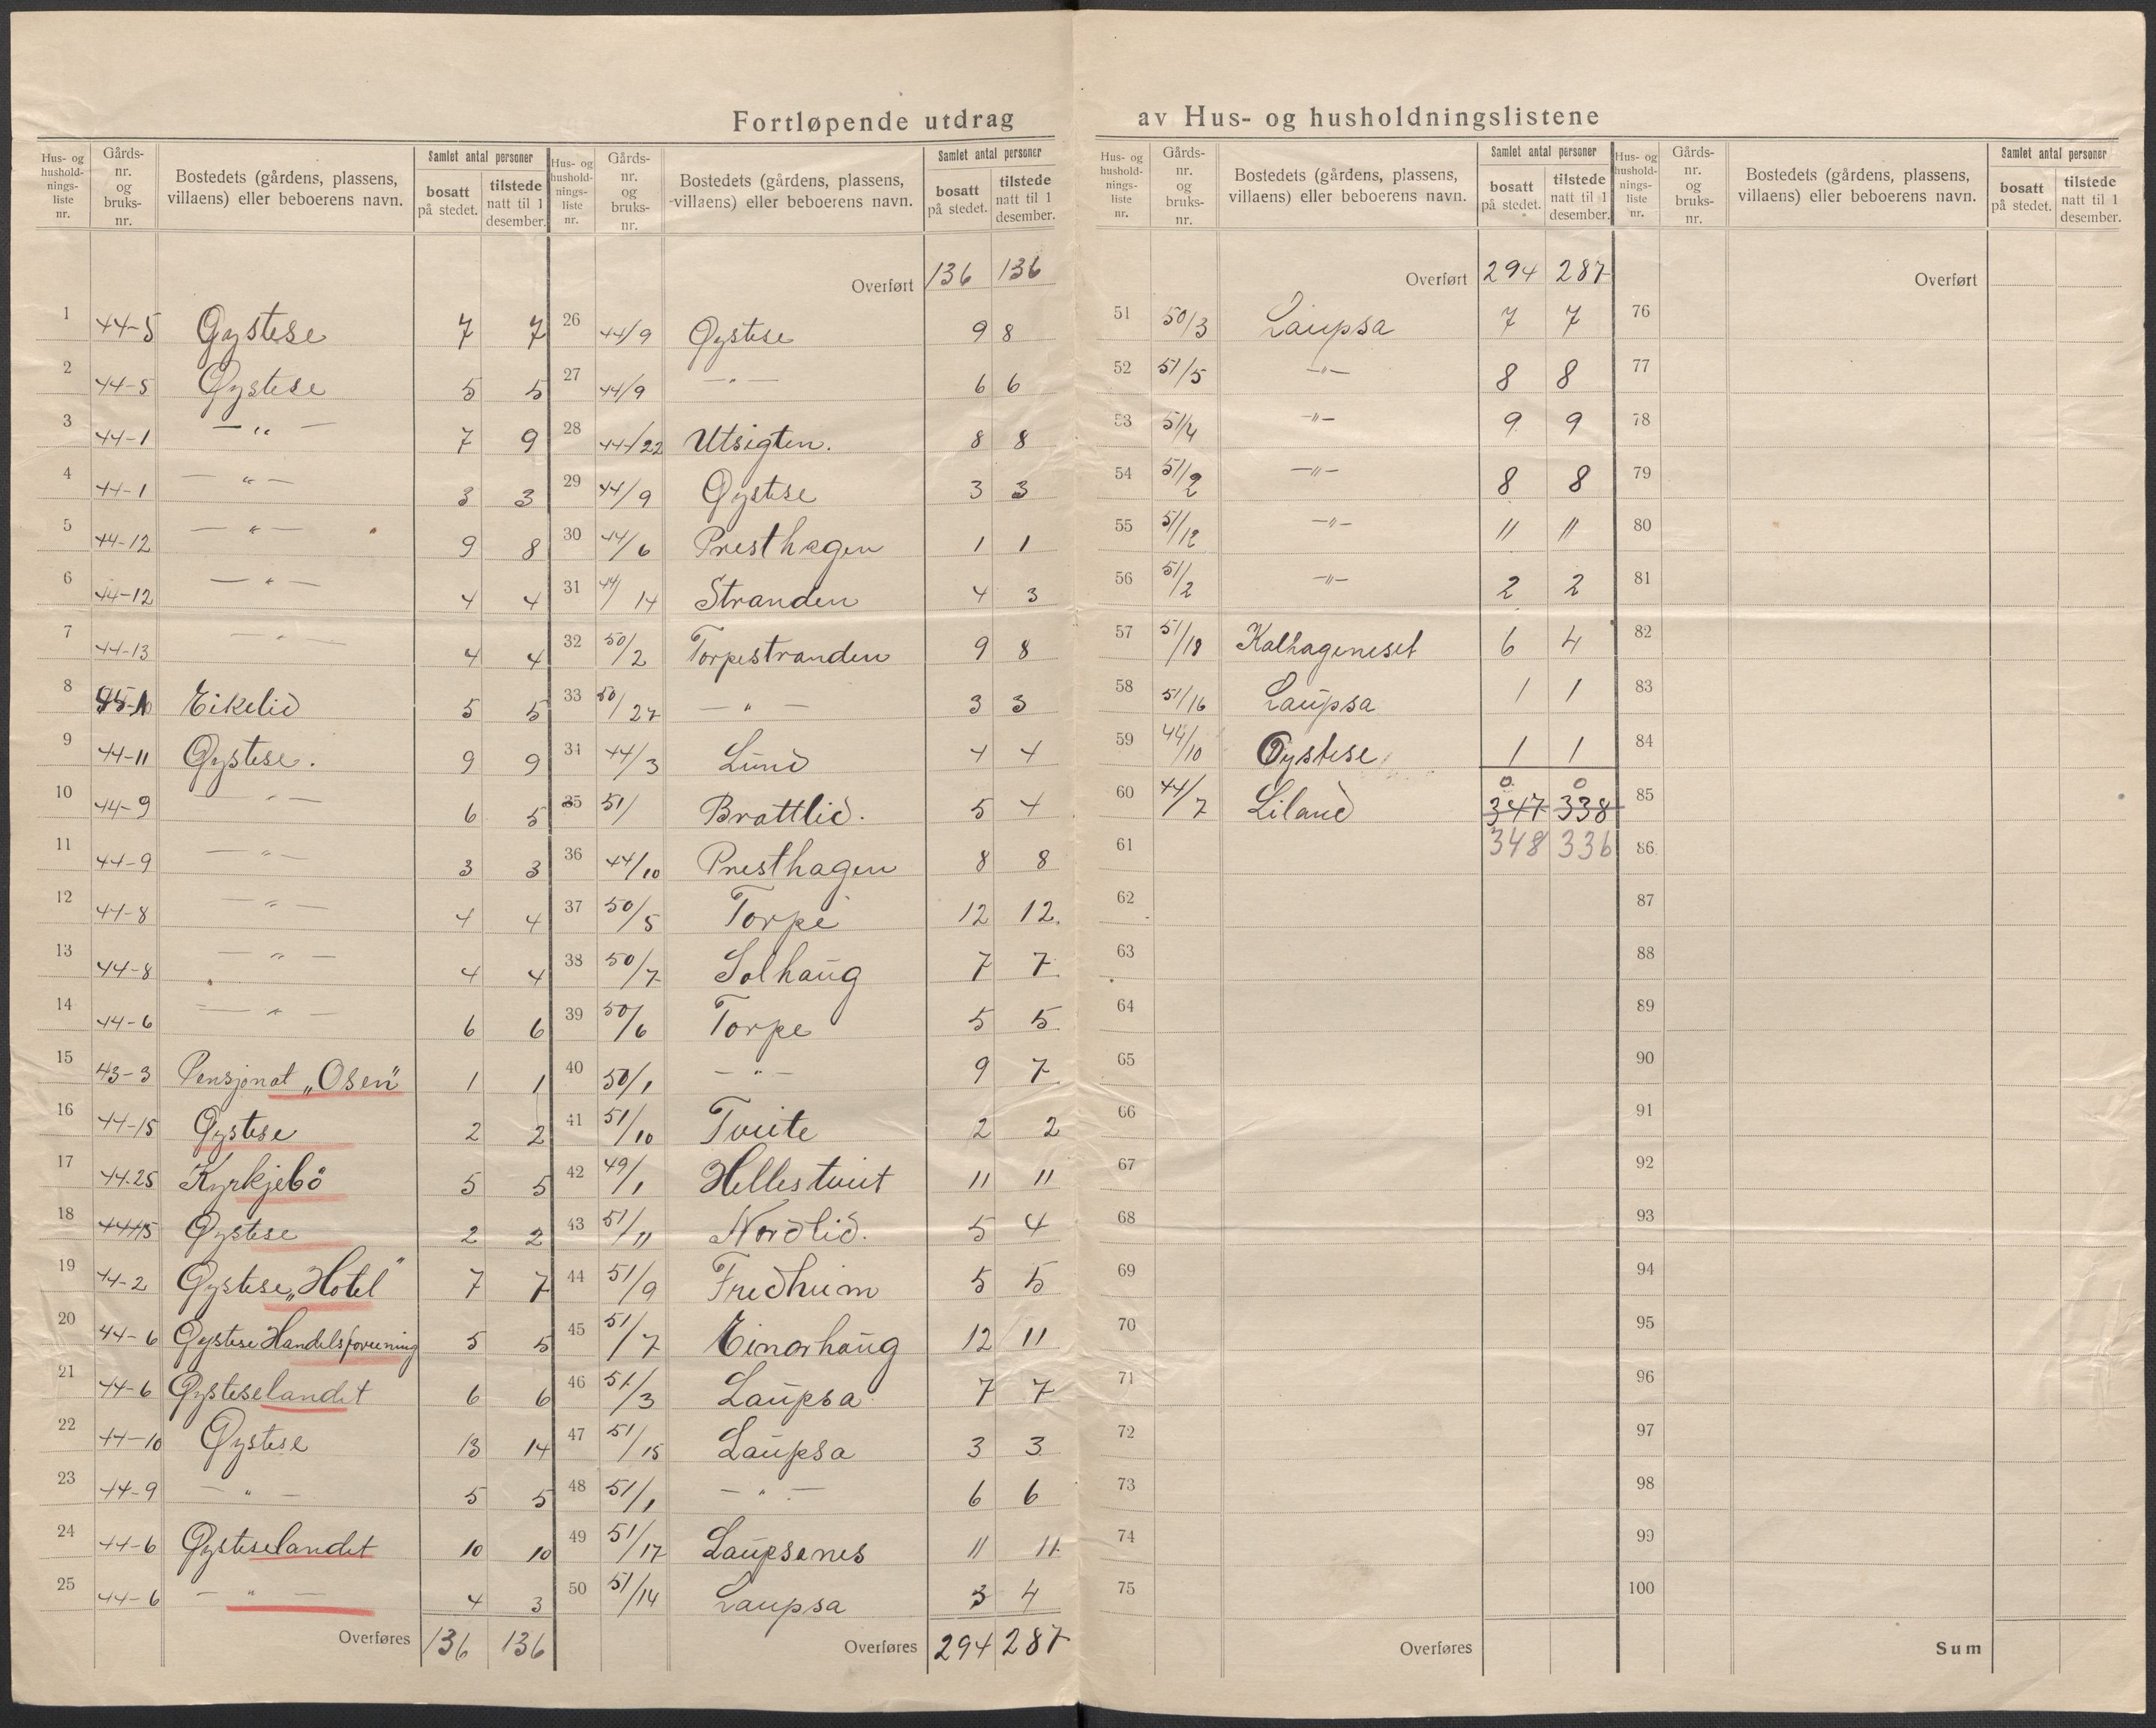 Fortløpende utdrag av Hus- og husholdningslistene
Hus- og husholdnings-liste nr. | Gårds-nr. og bruks-nr. | Bostedets (gårdens, plassens, villaens) eller beboerens navn. | Samlet antal personer bosatt på stedet. | tilstede natt til 1 desember.
1 44-5 Øystese 7 7
2 44-5 Øystese 5 5
3 44-1 — " — 7 9
4 44-1 — " — 3 3
5 44-12 — " — 9 8
6 44-12 — " — 4 4
7 44-13 — " — 4 4
8 Eikelid 5 5
9 44-11 Øystese. 9 9
10 44-9 — " — 6 5
11 44-9 — " — 3 3
12 44-8 — " — 4 4
13 44-8 — " — 4 4
14 44-6 — " — 6 6
15 43-3 Pensjonat „Osen" 1 1
16 44-15 Øystese 2 2
17 44.25 Kyrkjebö 5 5
18 44/15 Øystese 2 2
19 44-2 Øystese „Hotel" 7 7
20 44-6 Øystese Handelsforening 5 5
21 44-6 Øysteselandet 6 6
22 44-10 Øystese 13 14
23 44-9 — " — 5 5
24 44-6 Øysteselandet 10 10
25 44-6 — " — 4 3
Overføres 136 136
Hus- og husholdnings-liste nr. | Gårds-nr. og bruks-nr. | Bostedets (gårdens, plassens, villaens) eller beboerens navn. | Samlet antal personer bosatt på stedet. | tilstede natt til 1 desember.
Overført 136 136
26 44/9 Øystese 9 8
27 44/9 — " — 6 6
28 44/22 Utsigten. 8 8
29 44/9 Øystese 3 3
30 44/6 Presthagen 1 1
31 44/14 Stranden 4 3
32 50/2 Torpestranden 9 8
33 50/27 — " — 3 3
34 44/3 Lund 4 4
35 51/ Brattlid. 5 4
36 44/10 Presthagen 8 8
37 50/5 Torpe 12 12.
38 50/7 Solhaug 7 7
39 50/6 Torpe 5 5
40 50/1 — " — 9 7
41 51/10 Tveite 2 2
42 49/1 Hellestveit 11 11
43 51/11 Nordlid. 5 4
44 51/9 Fredheim 5 5
45 51/7 Einarhaug 12 11
46 51/3 Laupsa 7 7
47 51/15 Laupsa 3 3
48 51/1 — " — 6 6
49 51/17 Laupsanes 11 11
50 51/14 Laupsa 3 4
Overføres 294 287
Hus- og husholdnings-liste nr. | Gårds-nr. og bruks-nr. | Bostedets (gårdens, plassens, villaens) eller beboerens navn. | Samlet antal personer bosatt på stedet. | tilstede natt til 1 desember.
Overført 294 287
51 50/3 Laupsa 7 7
52 51/5 — " — 8 8
53 51/4 — " — 9 9
54 51/2 — " — 8 8
55 51/12 — " — 11 11
56 51/2 — " — 2 2
57 51/18 Kalhageneset 6 4
58 51/16 Laupsa 1 1
59 44/10 Øystese 1 1
60 44/7 Liland 0 0
347 338
61 348 336
62
63
64
65
66
67
68
69
70
71
72
73
74
75
Overføres
Hus- og husholdnings-liste nr. | Gårds-nr. og bruks-nr. | Bostedets (gårdens, plassens, villaens) eller beboerens navn. | Samlet antal personer bosatt på stedet. | tilstede natt til 1 desember.
Overført
76
77
78
79
80
81
82
83
84
85
86
87
88
89
90
91
92
93
94
95
96
97
98
99
100
Sum